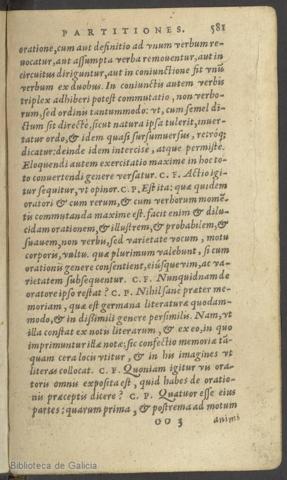 PARTITIONES. 581
oratione, cum aut definitio ad vnum verbum re-
uocatur, aut assumpta verba remouentur, aut in
circuitus diriguntur, aut in coniunctione fit vnũ
verbum ex duobus. In coniunctis autem verbis
triplex adhiberi potest commutatio, non verbo-
rum, sed ordinis tantummodo: vt, cum semel di-
ctum sit directè, sicut natura ipsa tulerit, inuer-
tatur ordo, & idem quasi sursumuersus, retroq;
dicatur: deinde idem intercise, atque permiste.
Eloquendi autem exercitatio maxime in hoc to-
to conuertendi genere versatur. C. F. Actio igi-
tur sequitur, vt opinor. C. P. Est ita: quæ quidem
oratori & cum rerum, & cum verborum momẽ-
tis commutanda maxime est. facit enim & dilu-
cidam orationem, & illustrem, & probabilem, &
suauem, non verbis, sed varietate vocum, motu
corporis, vultu. quæ plurimum valebunt, si cum
orationis genere consentient, eiúsque vim, ac va-
rietatem subsequentur. C. F. Nunquidnam de
oratore ipso restat? C. P. Nihil sanè præter me-
moriam, quæ est germana literaturæ quodam-
modo, & in dissimili genere persimilis. Nam, vt
illa constat ex notis literarum, & ex eo, in quo
imprimuntur illæ notæ: sic confectio memoriæ tã-
quam cera locis vtitur, & in his imagines vt
literas collocat. C. F. Quoniam igitur vis ora-
toris omnis exposita est, quid habes de oratio-
nis præceptis dicere? C. P. Quatuor esse eius
partes: quarum prima, & postrema ad motum
oo 3 animi
Biblioteca de Galicia